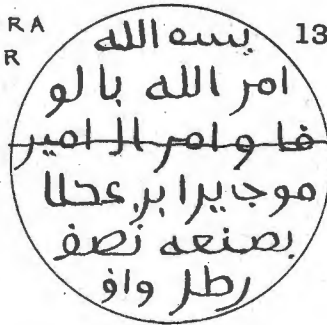 RA
R
13
بسم الله
امر الله بالو
فا وامر الامير
بصنعه نصف
رطل واف